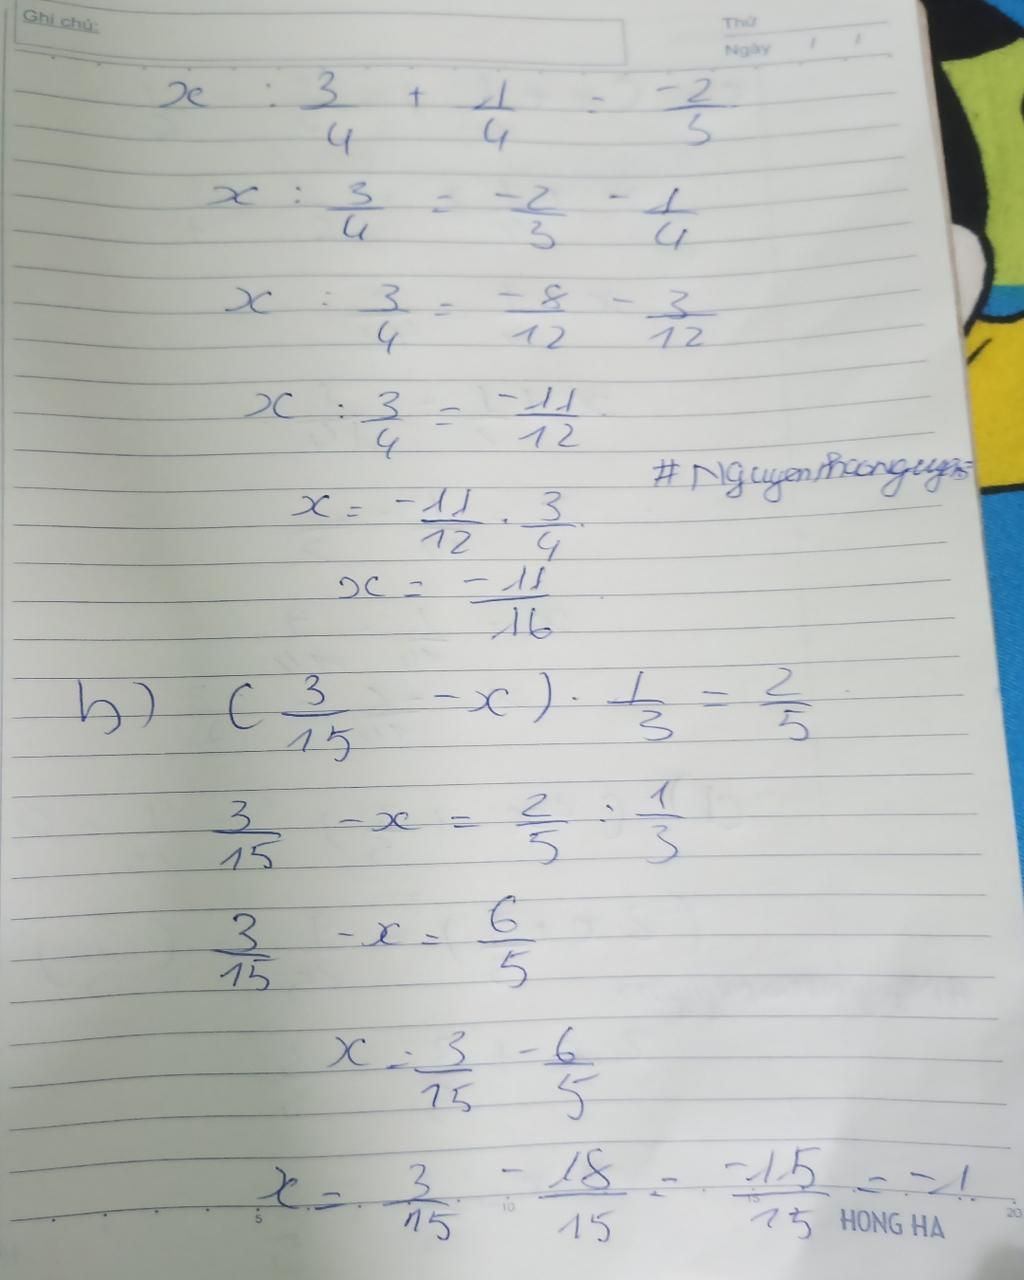 Ghi chú:
Thứ
Ngày / /
x : 3/4 + 1/4 = -2/3
x : 3/4 = -2/3 - 1/4
x : 3/4 = -8/12 - 3/12
x : 3/4 = -11/12
x = -11/12 . 3/4
x = -11/16
b) (3/15 - x) . 1/3 = 2/5
3/15 - x = 2/5 : 1/3
3/15 - x = 6/5
x = 3/15 - 6/5
x = 3/15 - 18/15 = -15/15 = -1
5 10 15 20
HONG HA